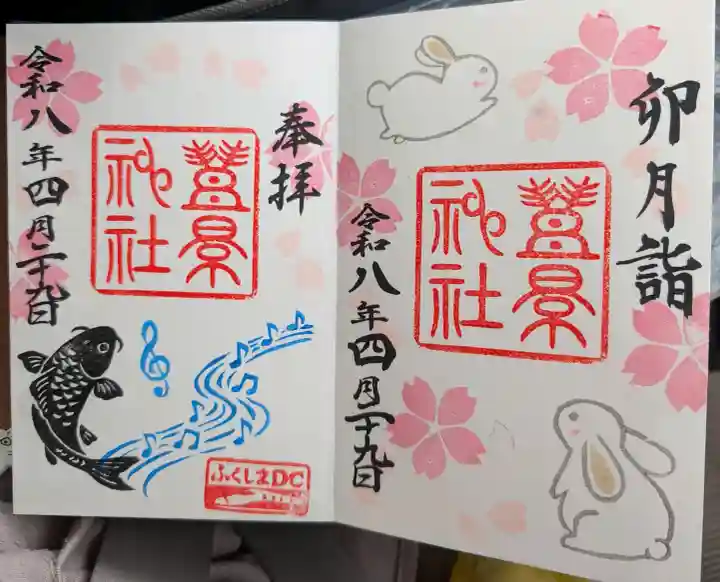 卯月詣
豐景
神社
令和八年四月二十九日
奉拝
豐景
神社
令和八年四月二十九日
ふくしまDC